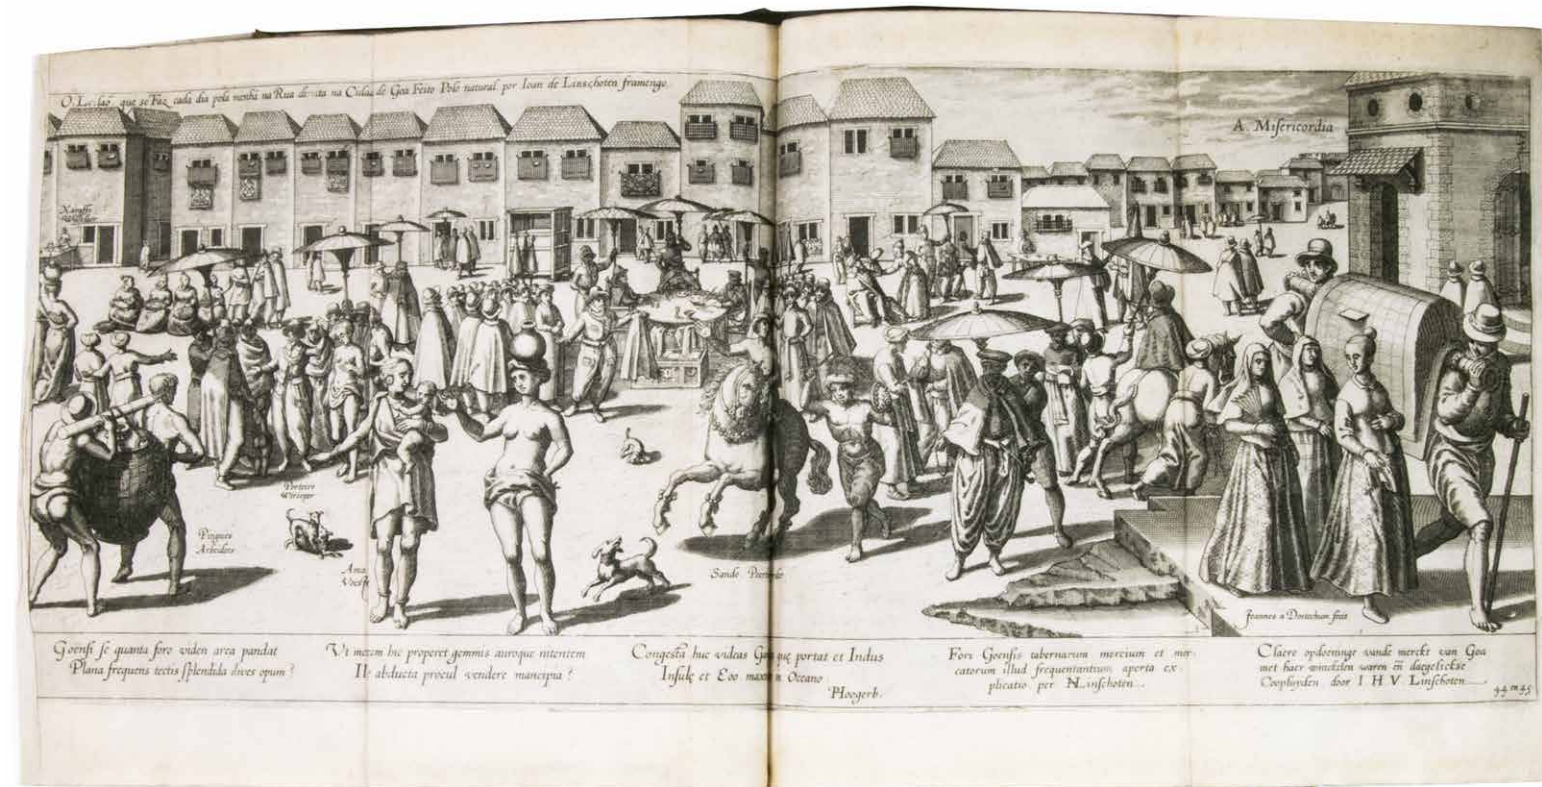 O Leilaõ que se Faz cada dia pola menhã na Rua de-ita na Cidad de Goa Feito Polo natural por Ioan de Linschoten framengo
A. Misericordia
Xaraffo
Wisselaer
Porteiro
Wtroeper
Pinguees
Arbeiders
Ama
Voester
Sando
Ioannes a Doetechum fecit
Goensi se quanta foro viden area pandat
Plana frequens tectis splendida dives opum?
Vt mecum huc properet gemmis auroque nitentem
Ile abducta procul vendere mancipia?
Congesta huc videas Goa que portat et Indus
Insulę et Eoo maxim Oceano.
PHoogerb.
Fori Goensis tabernarum mercium et mer,
catorum illud frequentantium aperta ex,
plicatio per Linschoten
Claere opdoeninge vande merckt van Goa
met haer winckelen waren eñ daegelickse
Coopluyden door I H V Linschoten
44 en 45